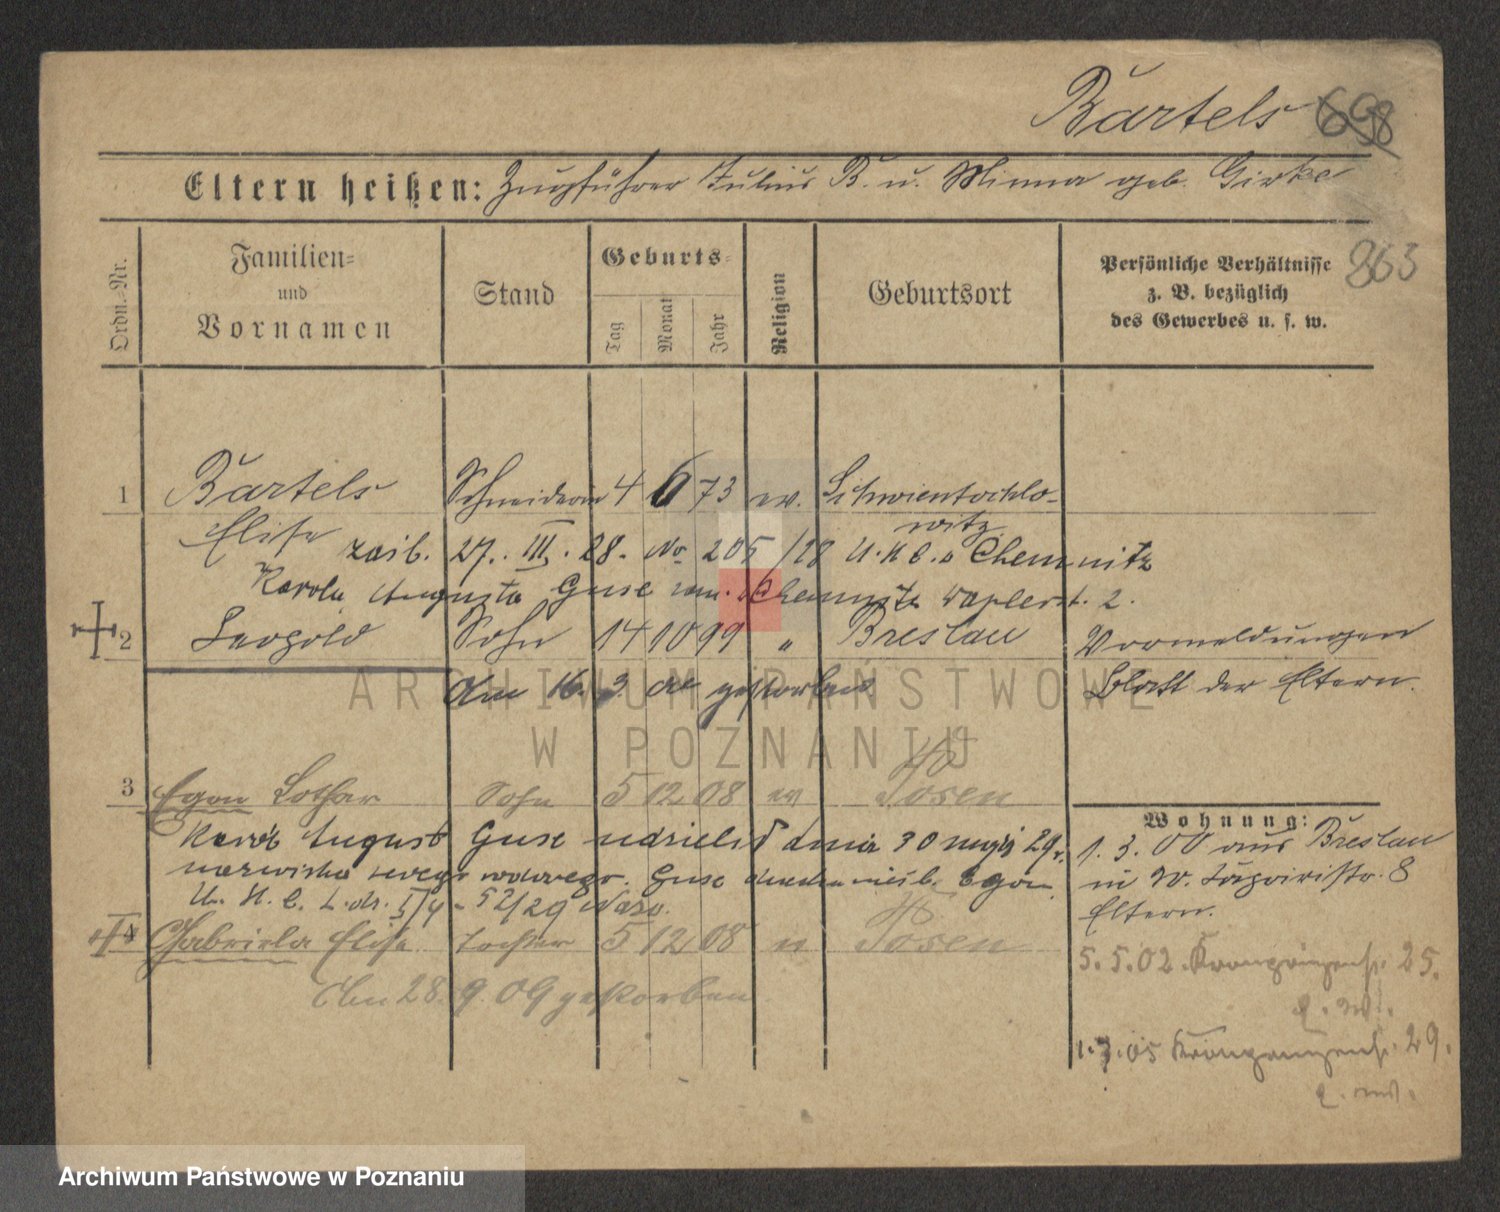 Bartels 698
Eltern heißen: Zugführer Julius B. u. Minna geb. Girke
863
Ordn.-Nr.
Familien-
und
Vornamen
Stand
Geburts-
Tag
Monat
Jahr
Religion
Geburtsort
Persönliche Verhältnisse
z. B. bezüglich
des Gewerbes u. s. w.
1 Bartels Schneiderin 4 6 73 ev. Schwientochlo-
Elise witz
27. III. 28. No 205/28 U.S.C. Chemnitz
Karola Augusta Guse Chemnitz 2.
2 Leopold Sohn 14 10 99 " Breslau Vormeldungen
Am 16. 3. 00 gestorben Blatt der Eltern.
3 Egon Lothar Sohn 5 12 08 ev Posen
Karol August Guse udzielił dnia 30 maja 29 r.
nazwiska swego Guse Egon
52/29
Wohnung:
1. 3. 00 aus Breslau
in W. 8
Eltern.
4 Gabriela Elise Tochter 5 12 08 " Posen
Am 28. 9. 09 gestorben
5. 5. 02. Kronprinzenstr. 25.
1. 7. 05 Kronprinzenstr. 29.
ARCHIWUM PAŃSTWOWE
W POZNANIU
Archiwum Państwowe w Poznaniu